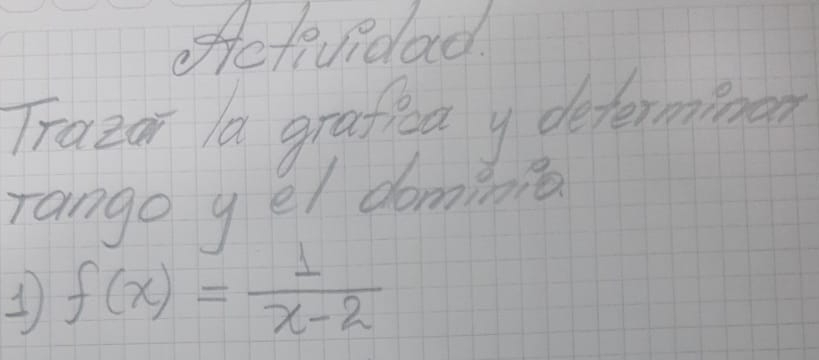 Actividad.
Trazar la grafica y determinar
rango y el dominio
1) f(x) = 1/(x-2)